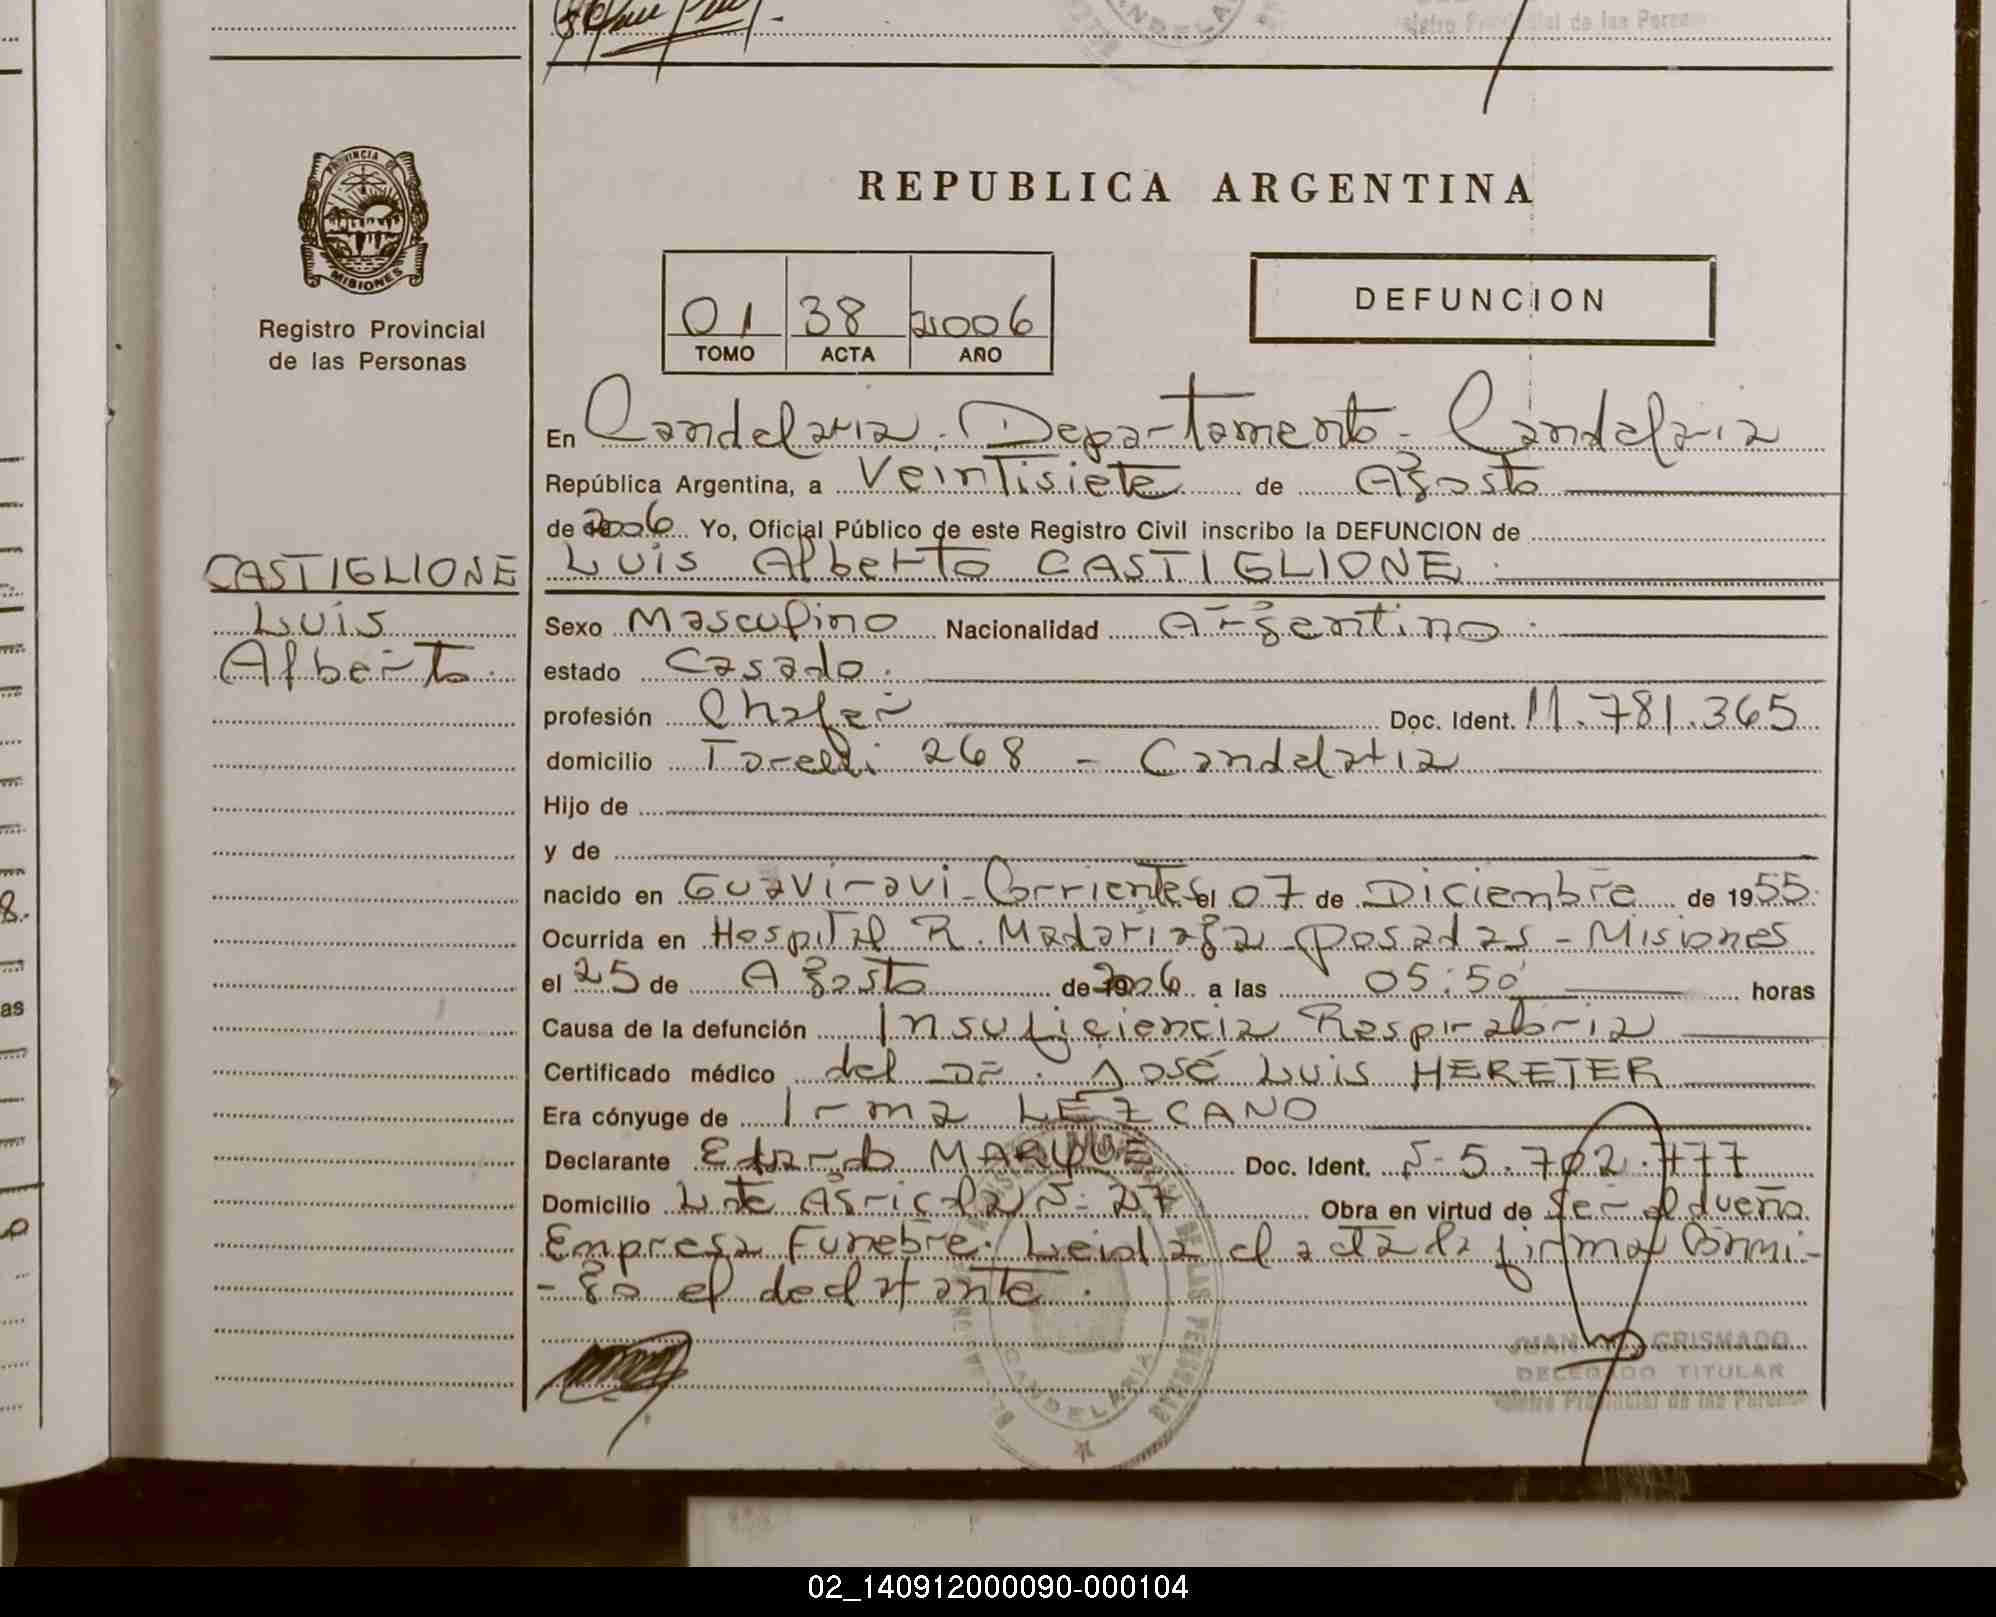 PROVINCIA DE
MISIONES
Registro Provincial
de las Personas
CASTIGLIONE
Luis
Alberto.
REPUBLICA ARGENTINA
01 38 2006
TOMO ACTA AÑO
DEFUNCION
En Candelaria. Departamento - Candelaria
República Argentina, a Veintisiete de Agosto
de 2006 Yo, Oficial Público de este Registro Civil inscribo la DEFUNCION de
Luis Alberto CASTIGLIONE.
Sexo Masculino Nacionalidad Argentino.
estado Casado.
profesión Chofer Doc. Ident. 11.781.365
domicilio Torelli 268 - Candelaria
Hijo de
y de
nacido en Guaviravi - Corrientes el 07 de Diciembre de 1955.
Ocurrida en Hospital R. Madariaga - Posadas - Misiones
el 25 de Agosto de 2006 a las 05:50 horas
Causa de la defunción Insuficiencia Respiratoria
Certificado médico del Dr. José Luis HERETER
Era cónyuge de Irma LEZCANO
Declarante Eduardo MARQUE Doc. Ident. 5.702.777
Domicilio Lote Agricola 27 Obra en virtud de Ser el dueño
Empresa Funebre. Leida el acta la firma Conmi-
-go el declarante.
CANDELARIA
JUAN GRISMADO
DELEGADO TITULAR
Registro Provincial de las Personas
02_140912000090-000104